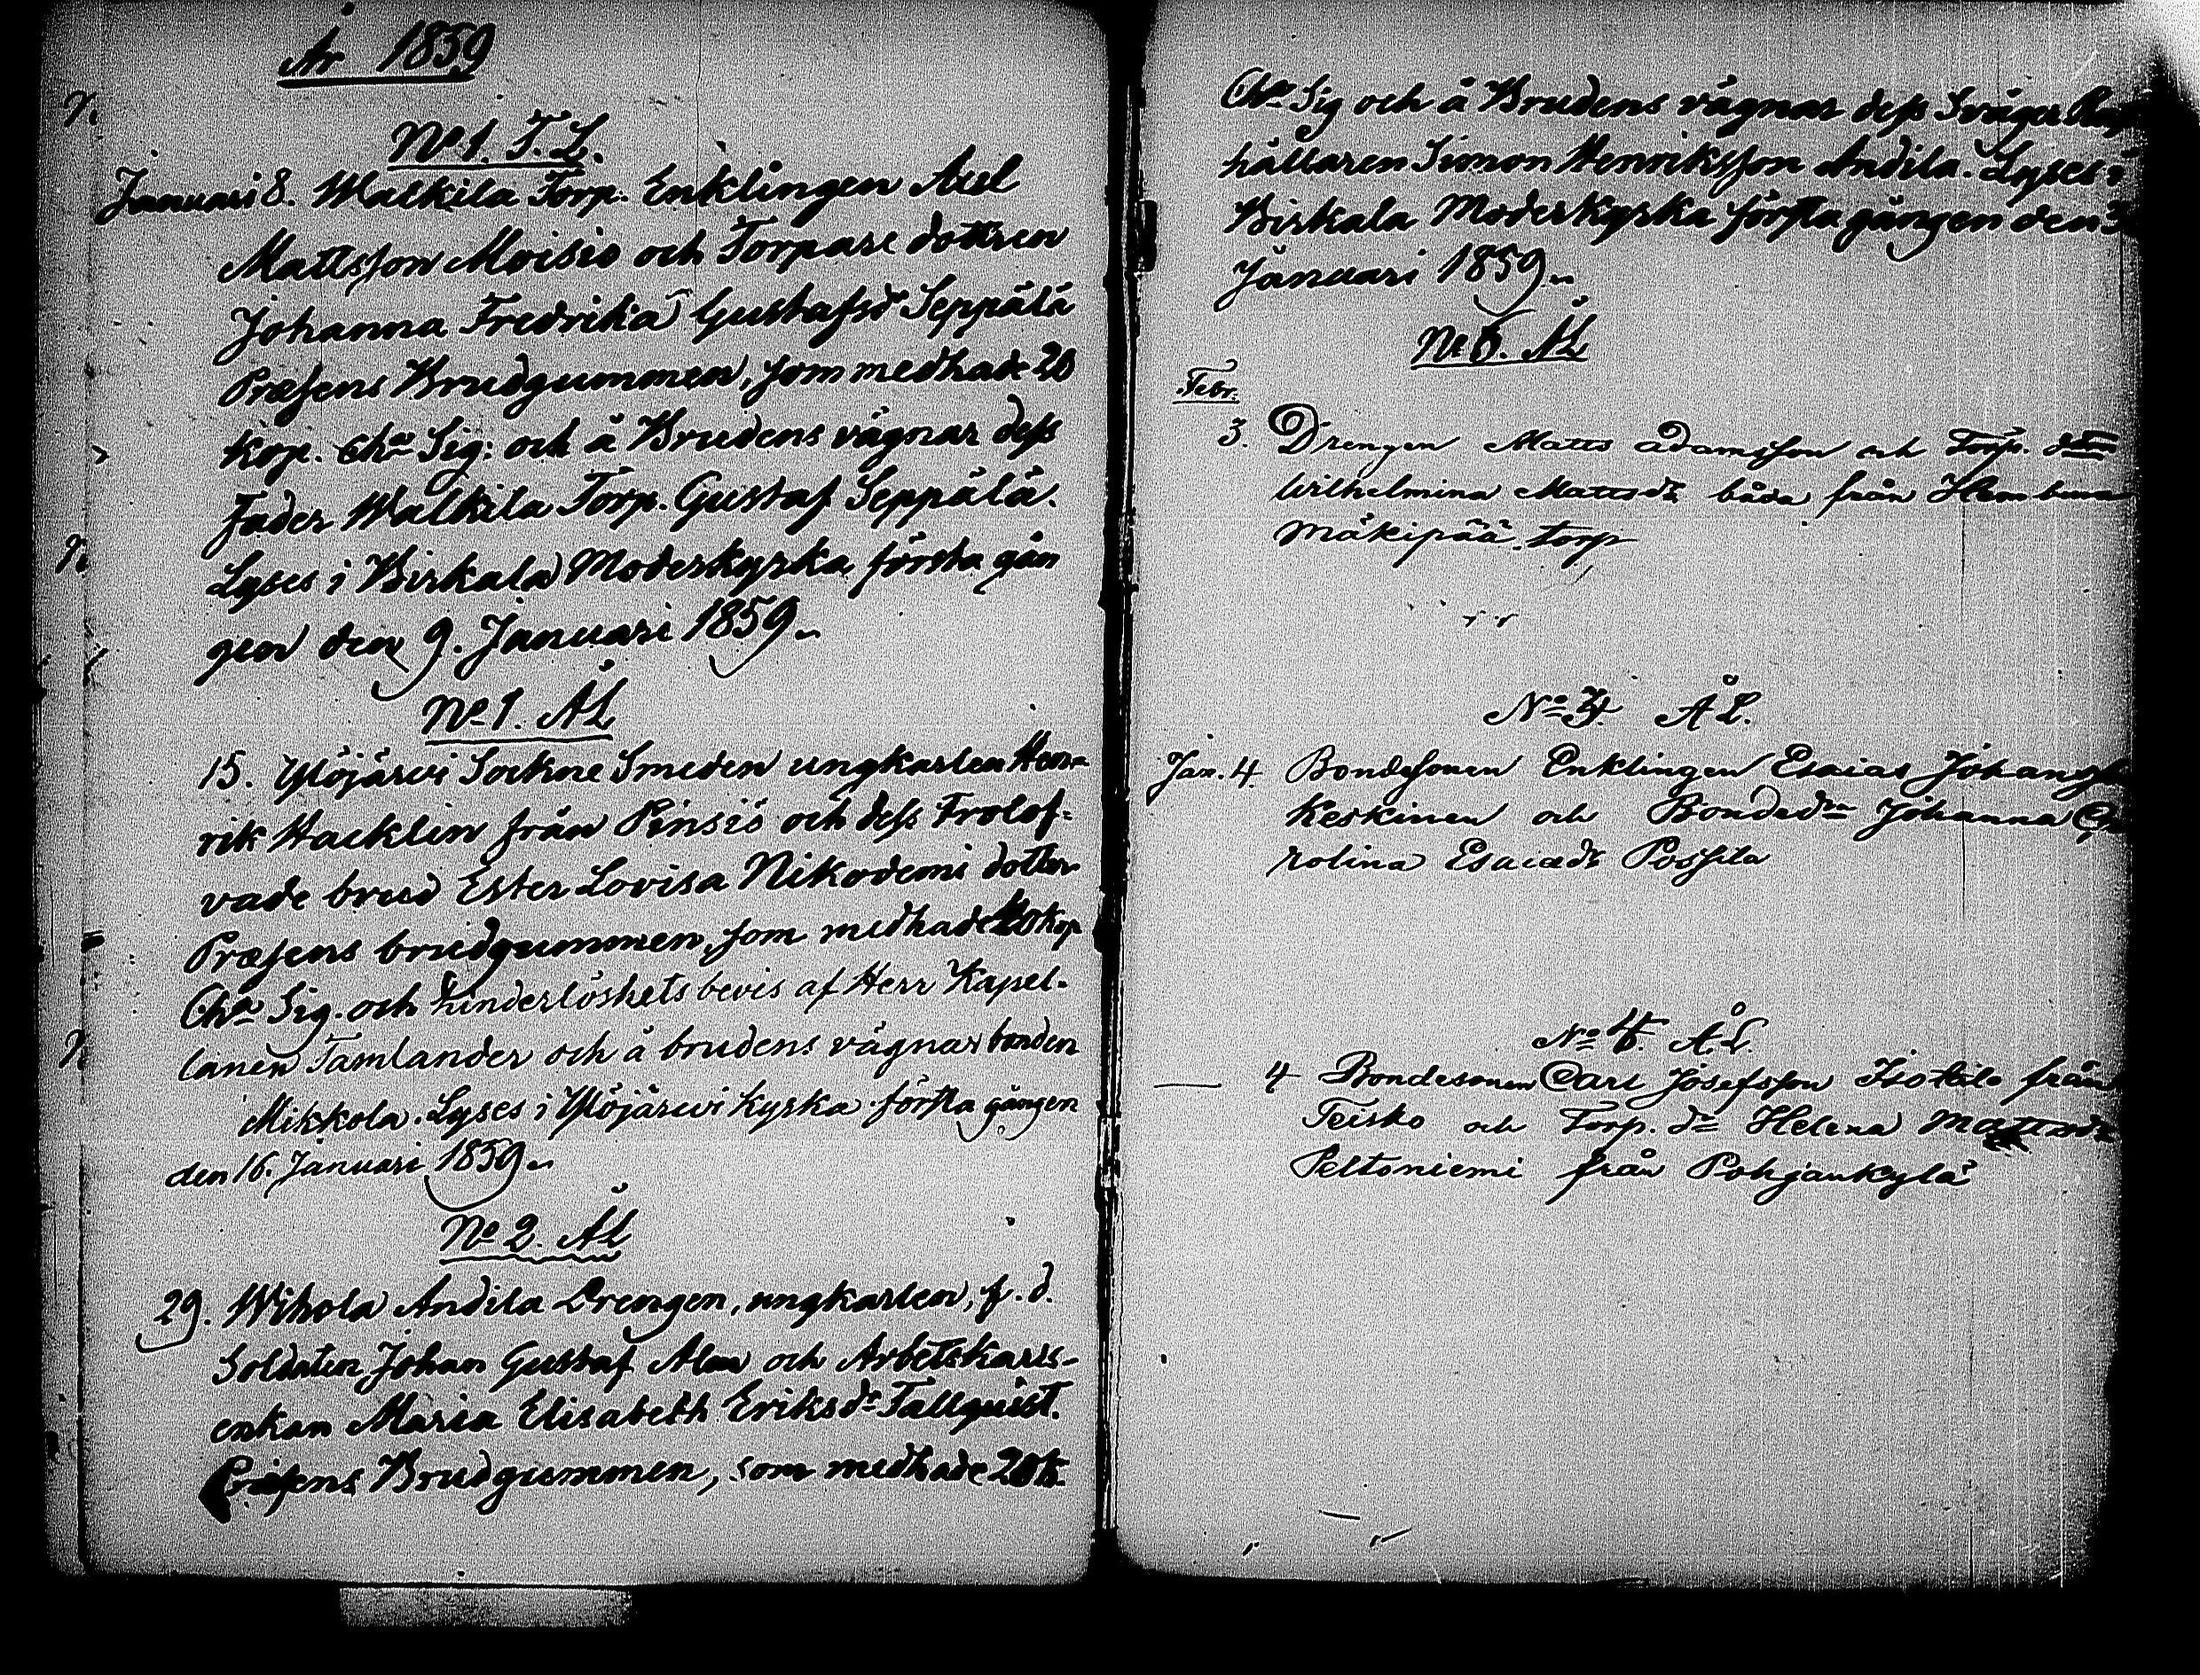 År 1859
No 1. T. L.
Januari 8. Walkila Torp. Enklingen Axel
Mattsson Moisio och Torpare dottren
Johanna Fredrika Gustafsd Seppälä
Præsens Brudgummen, som medhade 20
kop. Cha Sig: och å Brudens vägnar dess
Fader Walkila Torp. Gustaf Seppälä.
Lyses i Birkala Moderkyrka första gån
gen den 9. Januari 1859.
No 1. ÅL
15. Ylöjärvi Sockne Smeden ungkarlen Hen-
rik Hacklin från Pinsiö och dess Trolof-
vade brud Ester Lovisa Nikodemi dotter
Præsens brudgummen, som medhade 20 kop
Cha Sig. och hinderlöshets bevis af Herr Kapel-
lanen Tamlander och å brudens vägnar bonden
Mikkola. Lyses i Ylöjärvi kyrka första gången
den 16. Januari 1859.
No 2. ÅL
29. Wihola Andila Drengen, ungkarlen, f. d.
Soldaten Johan Gustaf Alm och Arbetskarls-
enkan Maria Elisabeth Eriksdr Tallquist.
Præsens Brudgummen, som medhade 20 k.
Cha Sig och å Brudens vägnar dess Svåger
hållaren Simon Henriksson Andila. Lyses i
Birkala Moderkyrka första gången den
Januari 1859.
No 5. ÅL
Febr.
3. Drengen Matts Adamsson och Torp. dn
Wilhelmina Mattsdr båda från
Mäkipää torp
No 3. ÅL.
Jan. 4. Bondesonen Enklingen Esaias Johanss
Keskinen och Bondedn Johanna Ca
rolina Esaiædr Possila
No 4. ÅL.
4 Bondesonen Carl Josefsson Isotalo från
Teisko och Torp. dn Helena Mattsdr
Peltoniemi från Pohjankylä